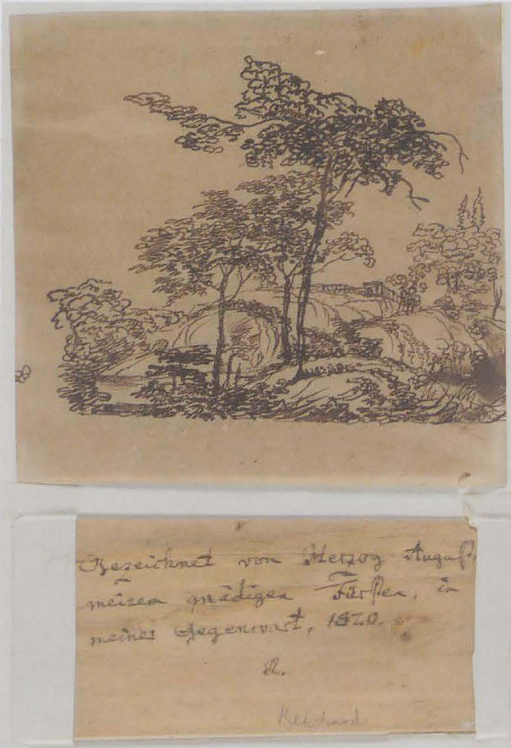 Gezeichnet von Herzog August,
meinem gnädigen Fürsten, in
meiner Gegenwart, 1820.
R.